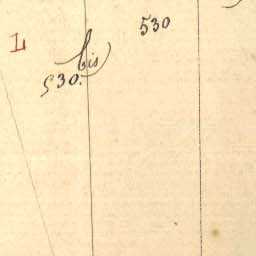 530
L
530. bis